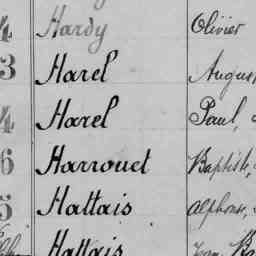 4 Hardy Olivier
3 Harel August
4 Harel Paul,
6 Harrouet Baptiste,
5 Hattais Alphonse,
Hattais Jean, Ba